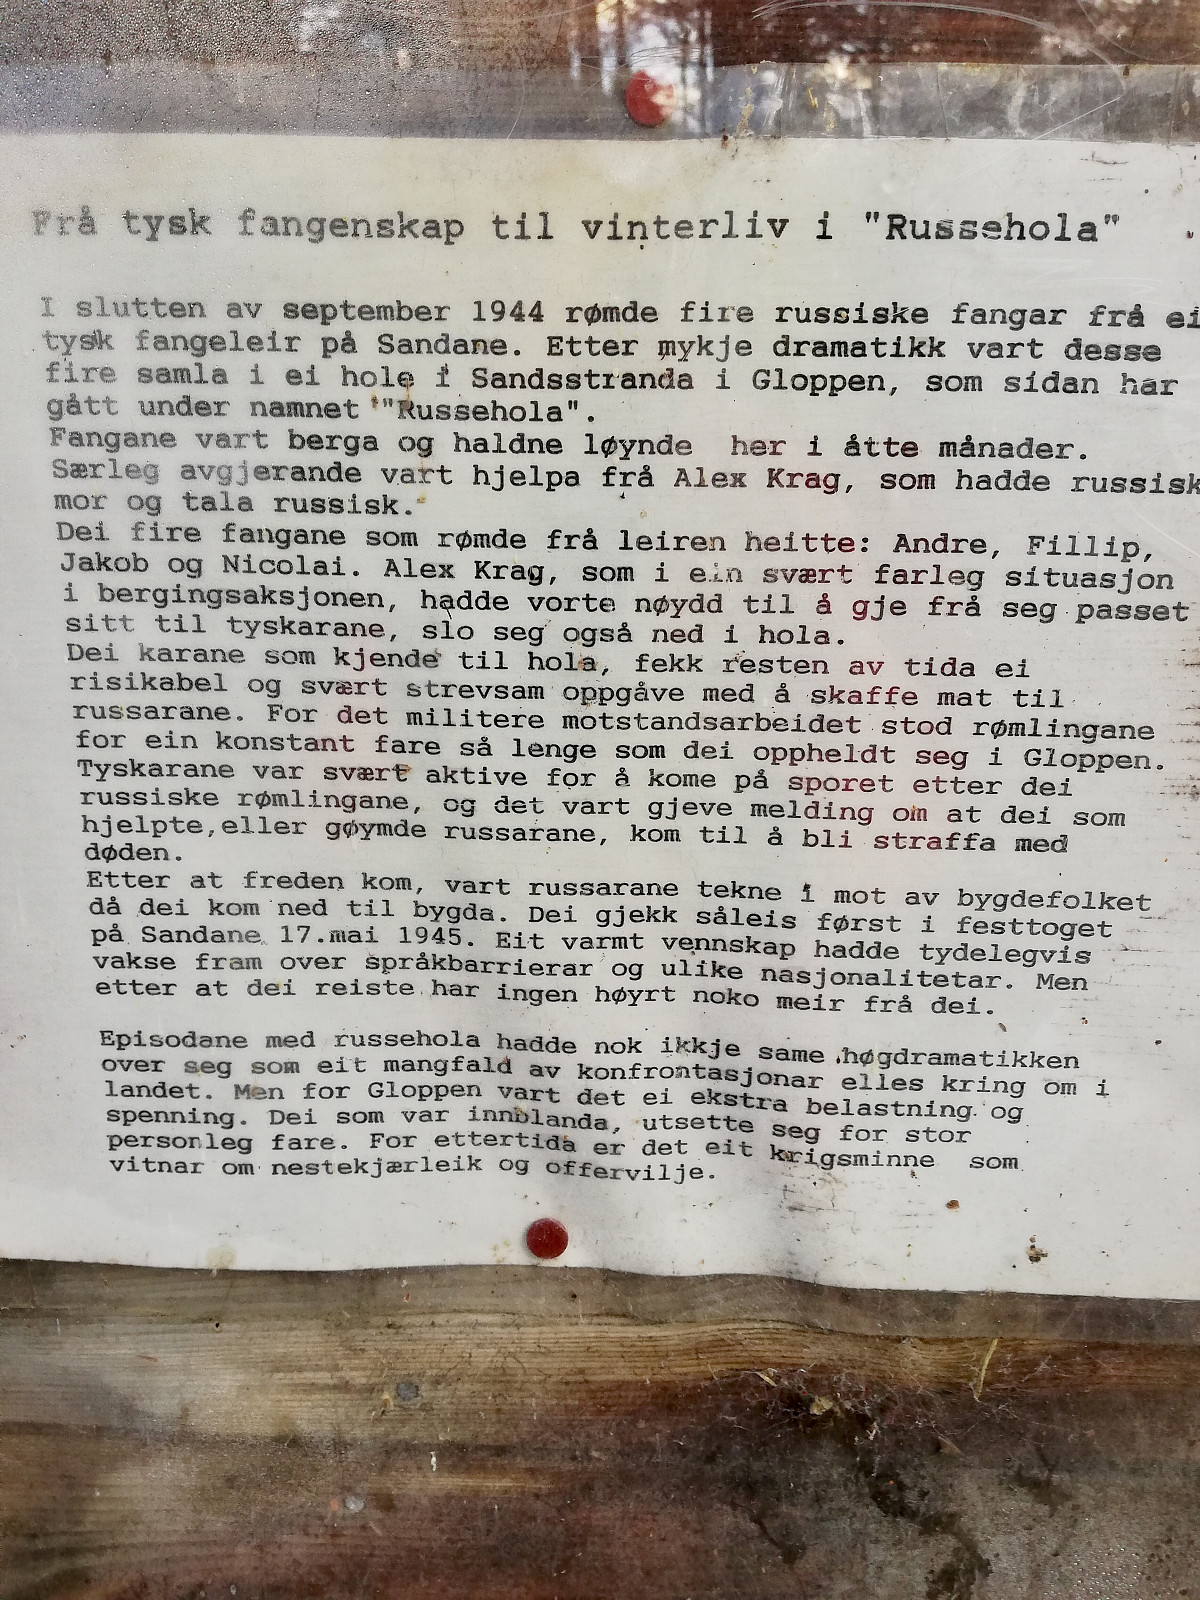 Frå tysk fangenskap til vinterliv i "Russehola"
I slutten av september 1944 rømde fire russiske fangar frå ei
tysk fangeleir på Sandane. Etter mykje dramatikk vart desse
fire samla i ei hole i Sandsstranda i Gloppen, som sidan har
gått under namnet "Russehola".
Fangane vart berga og haldne løynde her i åtte månader.
Særleg avgjerande vart hjelpa frå Alex Krag, som hadde russisk
mor og tala russisk.
Dei fire fangane som rømde frå leiren heitte: Andre, Fillip,
Jakob og Nicolai. Alex Krag, som i ein svært farleg situasjon
i bergingsaksjonen, hadde vorte nøydd til å gje frå seg passet
sitt til tyskarane, slo seg også ned i hola.
Dei karane som kjende til hola, fekk resten av tida ei
risikabel og svært strevsam oppgåve med å skaffe mat til
russarane. For det militere motstandsarbeidet stod rømlingane
for ein konstant fare så lenge som dei oppheldt seg i Gloppen.
Tyskarane var svært aktive for å kome på sporet etter dei
russiske rømlingane, og det vart gjeve melding om at dei som
hjelpte,eller gøymde russarane, kom til å bli straffa med
døden.
Etter at freden kom, vart russarane tekne i mot av bygdefolket
då dei kom ned til bygda. Dei gjekk såleis først i festtoget
på Sandane 17.mai 1945. Eit varmt vennskap hadde tydelegvis
vakse fram over språkbarrierar og ulike nasjonalitetar. Men
etter at dei reiste har ingen høyrt noko meir frå dei.
Episodane med russehola hadde nok ikkje same høgdramatikken
over seg som eit mangfald av konfrontasjonar elles kring om i
landet. Men for Gloppen vart det ei ekstra belastning og
spenning. Dei som var innblanda, utsette seg for stor
personleg fare. For ettertida er det eit krigsminne som
vitnar om nestekjærleik og offervilje.